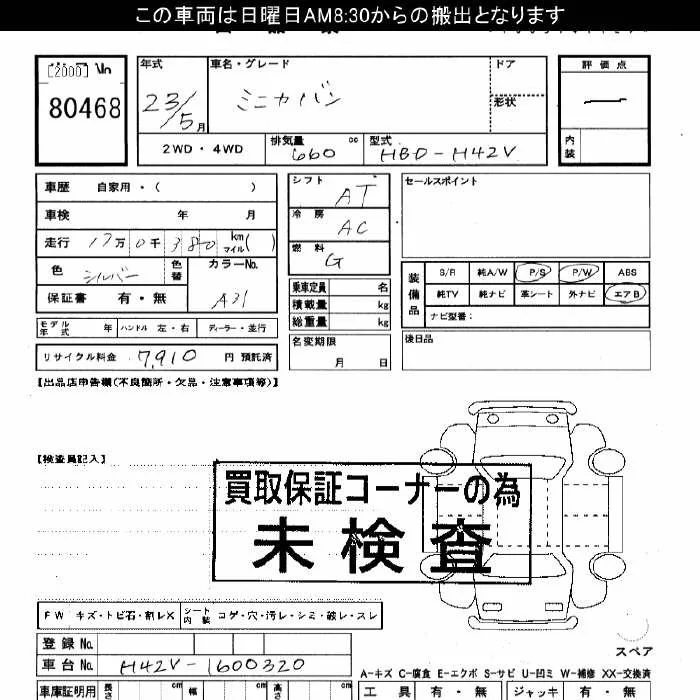 この車両は日曜日AM8:30からの搬出となります
[2000]
80468
年式 車名・グレード ドア
23/5月 ミニカバン 形状
2WD・4WD 排気量 660 cc 型式 HBD-H42V
評価点
内装
車歴 自家用・( )
車検 年 月
走行 17万 0千 380 km マイル( )
色 シルバー 色替 カラーNo. A31
保証書 有・無
モデル年式 年 ハンドル 左・右 ディーラー・並行
リサイクル料金 7,910 円 預託済
シフト AT
冷房 AC
燃料 G
乗車定員 名
積載量 kg
総重量 kg
名変期限 月 日
セールスポイント
装備品 S/R 純A/W P/S P/W ABS
純TV 純ナビ 革シート 外ナビ エアB
ナビ型番:
後日品
【出品店申告欄(不良箇所・欠品・注意事項等)】
【検査員記入】
買取保証コーナーの為
未検査
FW キズ・トビ石・割レX シート内装 コゲ・穴・汚レ・シミ・破レ・スレ
登録 No.
車台 No. H42V-1600320
スペア
A-キズ C-腐食 E-エクボ S-サビ U-凹ミ W-補修 XX-交換済
車庫証明用 長さ cm 幅 cm 高さ cm
工具 有・無 ジャッキ 有・無